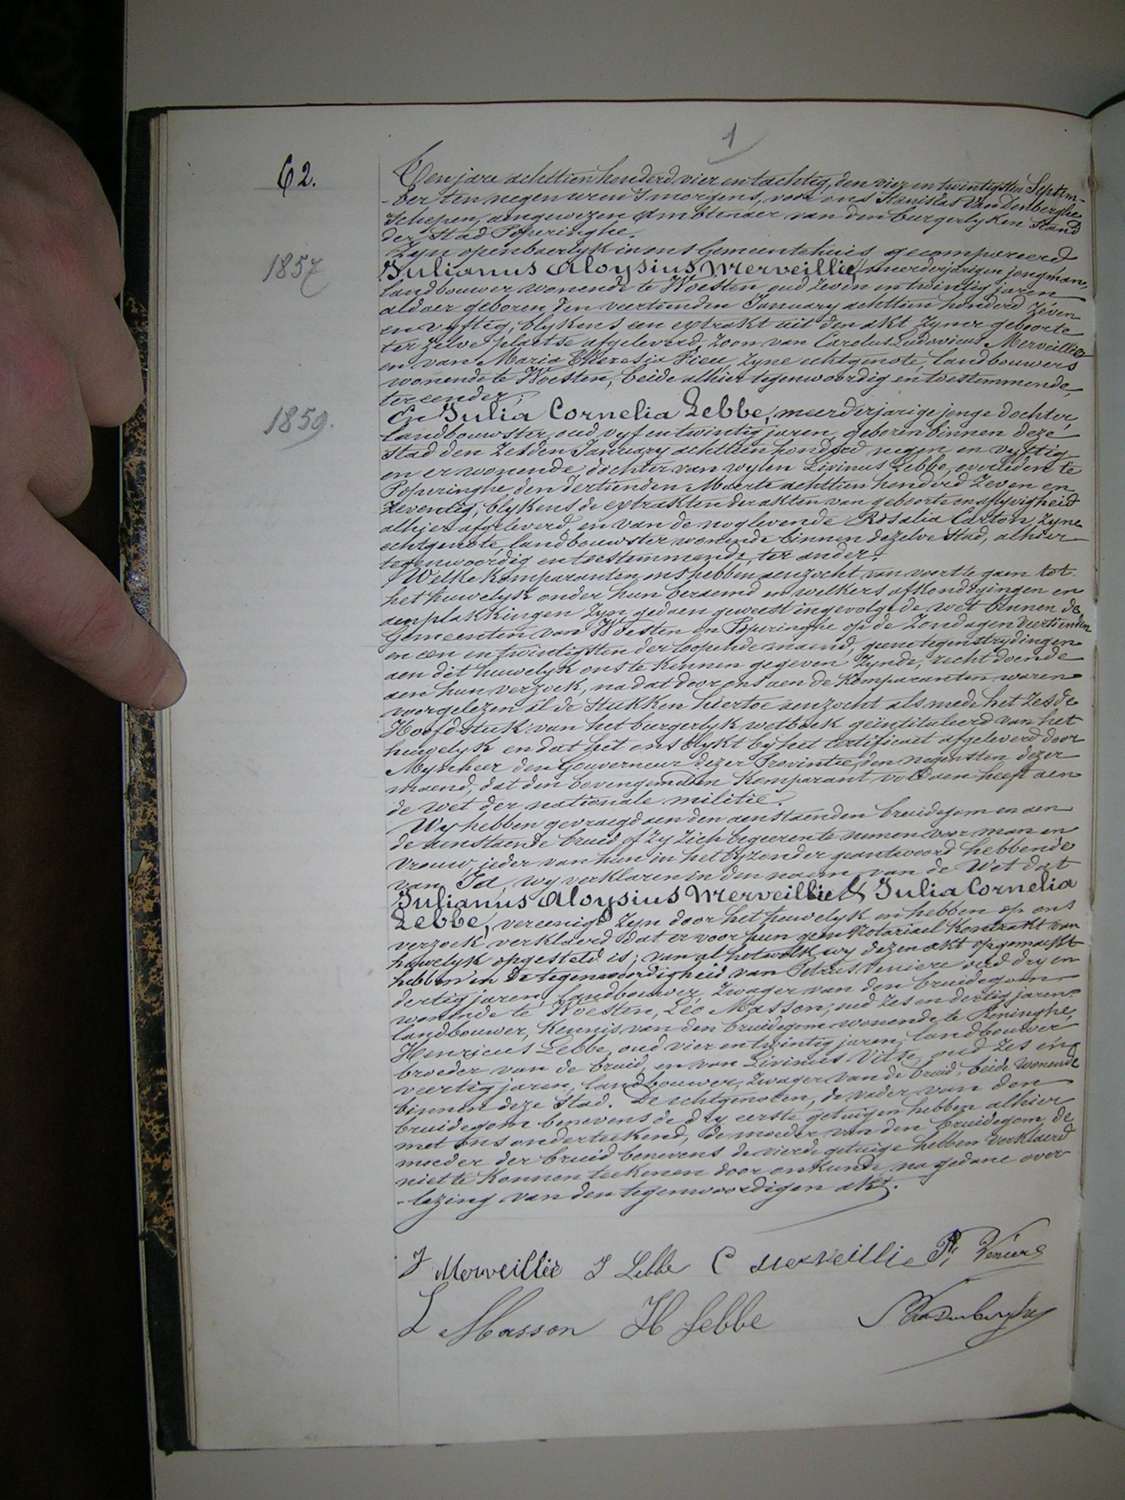 1
62.
Ten jare achttien honderd vier en tachtig, den vier en twintigsten Septem-
-ber ten negen uren 's morgens, voor ons Stanislas Vandenberghe
Schepen, aengewezen Ambtenaer van den burgerlyken Stand
der Stad Poperinghe.
Zyn openbaerlyk in ons Gemeentehuis gecompareerd
1857
Julianus Aloysius Merveillie, meerderjarigen jongman,
landbouwer wonende te Woesten oud zeven en twintig jaren
aldaer geboren den veertienden January achttien honderd zeven
en vyftig, blykens een extrakt uit den akt zyner geboorte
ter zelve plaetse afgeleverd, zoon van Carolus Ludovicus Merveillie
en van Maria Theresia Pieu, zyne echtgenote, landbouwers
wonende te Woesten, beide alhier tegenwoordig en toestemmende,
ter eender;
1859.
En Julia Cornelia Lebbe, meerderjarige jonge dochter,
landbouwster, oud vyf en twintig jaren, geboren binnen deze
stad den zesden January achttien honderd negen en vyftig
en er wonende, dochter van wylen Livinus Lebbe, overleden te
Poperinghe, den dertienden Maerte achttien honderd zeven en
zeventig, blykens de extrakten der akten van geboorte en aflyvigheid
alhier afgeleverd, en van de nog levende Rosalia Carton, zyne
echtgenote, landbouwster wonende binnen dezelve stad, alhier
tegenwoordig en toestemmende, ter ander.
Welke komparanten ons hebben aenzocht van voort te gaen tot
het huwelyk onder hun beraemd en welkers afkondigingen en
aenplakkingen zyn gedaen geweest ingevolge de wet binnen de
Gemeenten van Woesten en Poperinghe op de Zondagen veertienden
en een en twintigsten der loopende maend, geene tegenstrydingen
aen dit huwelyk ons te kennen gegeven zynde, recht doende
aen hun verzoek, na dat door ons aen de komparanten waren
voorgelezen al de stukken hiertoe aenzocht als mede het zesde
Hoofdstuk van het burgerlyk wetboek geïntituleerd van het
huwelyk en dat het ons blykt by het certificaet afgeleverd door
Mynheer den Gouverneur dezer Provintie, den negensten dezer
maend, dat den bovengemelden komparant voldaen heeft aen
de wet der nationale militie.
Wy hebben gevraegd aen den aenstaenden bruidegom en aen
de aenstaende bruid of zy zich begeeren te nemen voor man en
vrouw, ieder van hun in het byzonder geantwoord hebbende
van Ja, wy verklaren in den naem van de Wet dat
Julianus Aloysius Merveillie & Julia Cornelia
Lebbe, vereenigd zyn door het huwelyk en hebben op ons
verzoek verklaerd dat er voor hun geen Notariael kontrakt van
huwelyk opgesteld is; van al hetwelk wy dezen akt opgemaekt
hebben in de tegenwoordigheid van Petrus Veniere oud dry en
dertig jaren, landbouwer, zwager van den bruidegom
wonende te Woesten, Leo Masson, oud zes en dertig jaren
landbouwer, kennis van den bruidegom wonende te Reninghe,
Henricus Lebbe, oud vier en twintig jaren, landbouwer
broeder van de bruid, en van Livinus Vitse, oud zes en
veertig jaren, landbouwer, zwager van de bruid, beide wonende
binnen deze Stad. De echtgenoten, de vader van den
bruidegom benevens de dry eerste getuigen hebben alhier
met ons onderteekend, de moeder van den bruidegom, de
moeder der bruid benevens de vierde getuige hebben verklaerd
niet te konnen teekenen door onkunde na gedane over-
-lezing van den tegenwoordigen akt.
J Merveillie J Lebbe C Merveillie P Veniere
L Masson H Lebbe S Vandenberghe